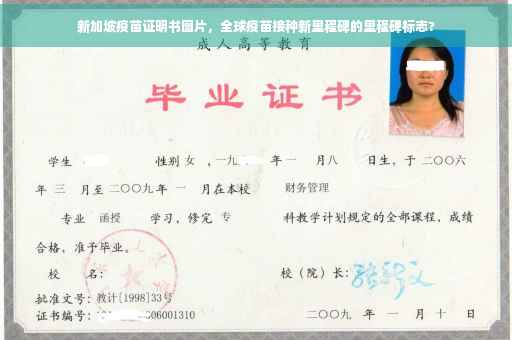 新加坡疫苗证明书图片，全球疫苗接种新里程碑的里程碑标志?
成人高等教育
毕业证书
学生 性别 女 ，一九 年 一 月八 日生，于 二〇〇六
年 三 月至 二〇〇九 年 一 月在本校 财务管理
专业 函授 学习，修完 专 科教学计划规定的全部课程，成绩
合格，准予毕业。
校 名： 校（院）长：
批准文号：教计[1998]33号
证书编号： 06001310 二〇〇九 年 一 月 十 日